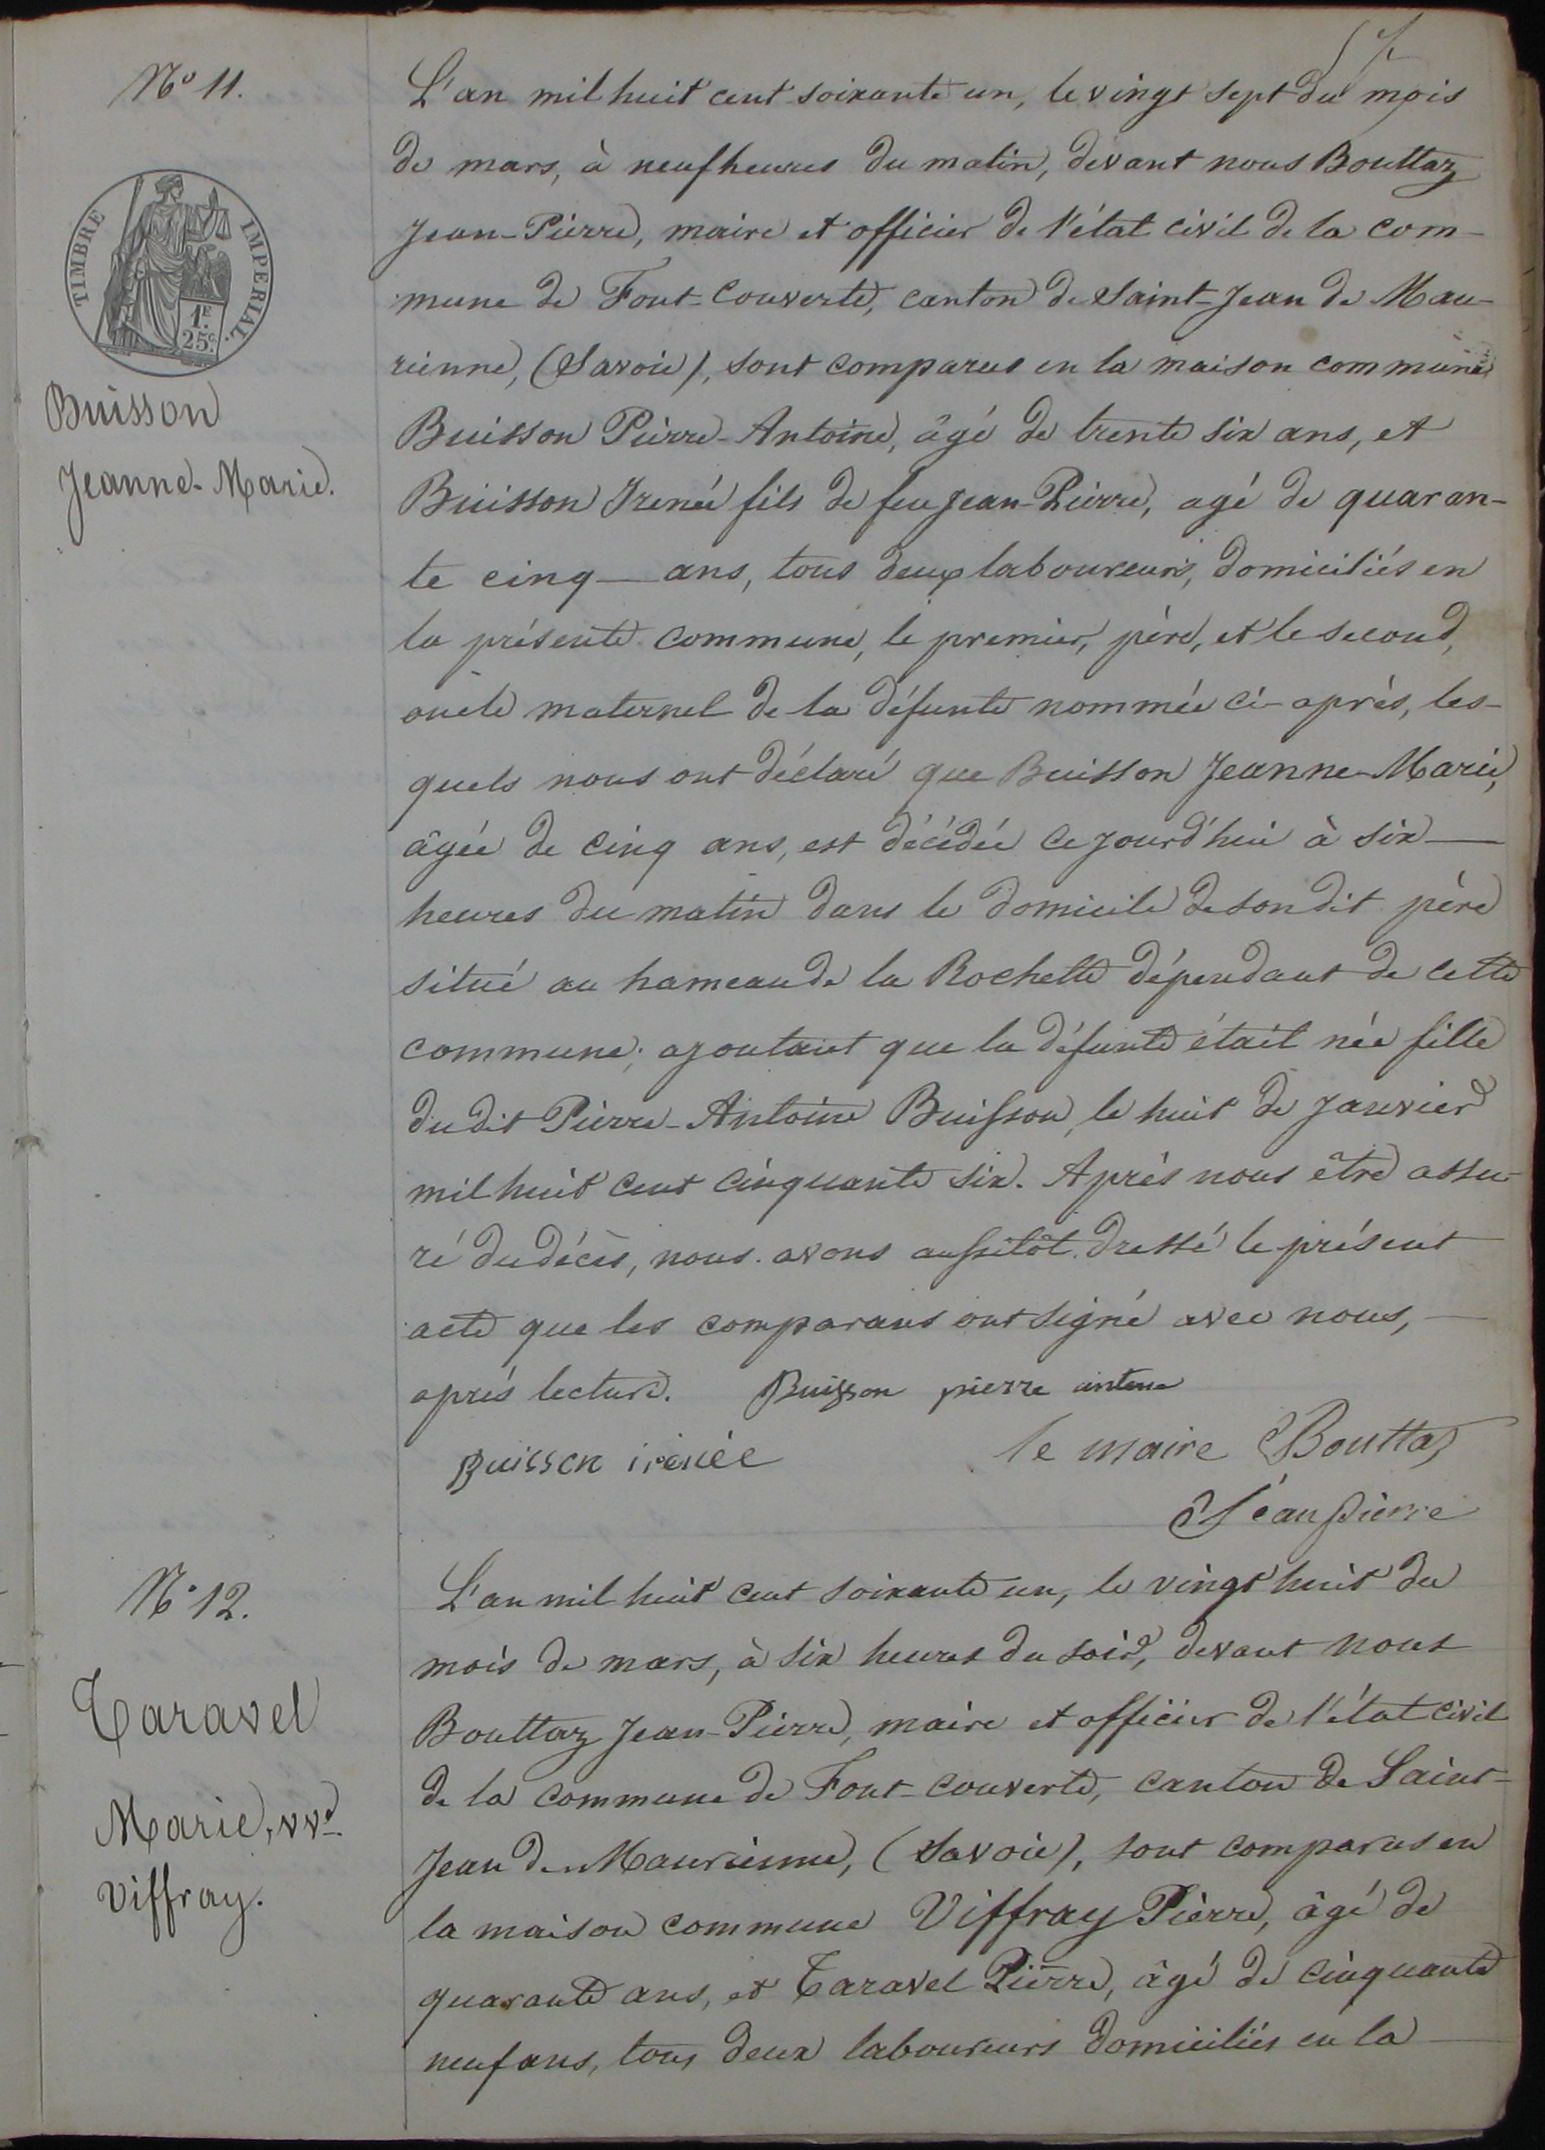 N° 11.
TIMBRE IMPERIAL.
1F.
25c.
Buisson
Jeanne-Marie.
L'an mil huit cent soixante un, le vingt sept du mois
de mars, à neuf heures du matin, devant nous Bouttaz
Jean-Pierre, maire et officier de l'état civil de la com-
mune de Font-couverte, canton de Saint-Jean de Mau-
rienne, (Savoie), sont comparus en la maison commune
Buisson Pierre-Antoine, âgé de trente six ans, et
Buisson Irenée fils de feu Jean-Pierre, agé de quaran-
te cinq — ans, tous deux laboureurs, domiciliés en
la présente commune, le premier, père, et le second,
oncle maternel de la défunte nommée ci-après, les-
quels nous ont déclaré que Buisson Jeanne-Marie,
âgée de cinq ans, est décédée ce jourd'hui à six —
heures du matin dans le domicile de son dit père
situé au hameau de la Rochette dépendant de cette
commune; ajoutant que la défunte était née fille
du dit Pierre-Antoine Buisson, le huit de janvier
mil huit cent cinquante six. Après nous être assu-
ré du décès, nous avons aussitôt dressé le présent
acte que les comparans ont signé avec nous, —
après lecture. Buisson pierre antone
Buisson irénée le maire Bouttaz
Jéan Pierre
N° 12.
Taravel
Marie, vve
Viffray.
L'an mil huit cent soixante un, le vingt huit du
mois de mars, à six heures du soir, devant nous
Bouttaz Jean-Pierre, maire et officier de l'état civil
de la commune de Font-couverte, canton de Saint-
Jean de Maurienne, (Savoie), sont comparus en
la maison commune Viffray Pierre, âgé de
quarante ans, et Taravel Pierre, âgé de cinquante
neuf ans, tous deux laboureurs domiciliés en la —